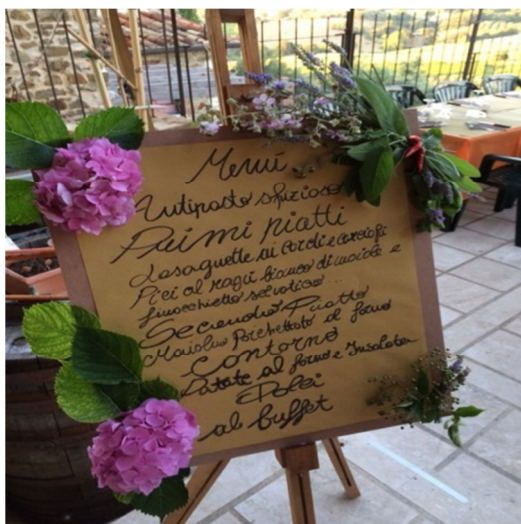 Menù
Antipasto sfizioso
Primi piatti
Lasagnette ai cardi e carciofi
Pici al ragù bianco di maiale e
finocchietto selvatico...
Secondo Piatto
Maiale Porchettato al forno
Contorno
Patate al forno e Insalata
Dolci
al buffet